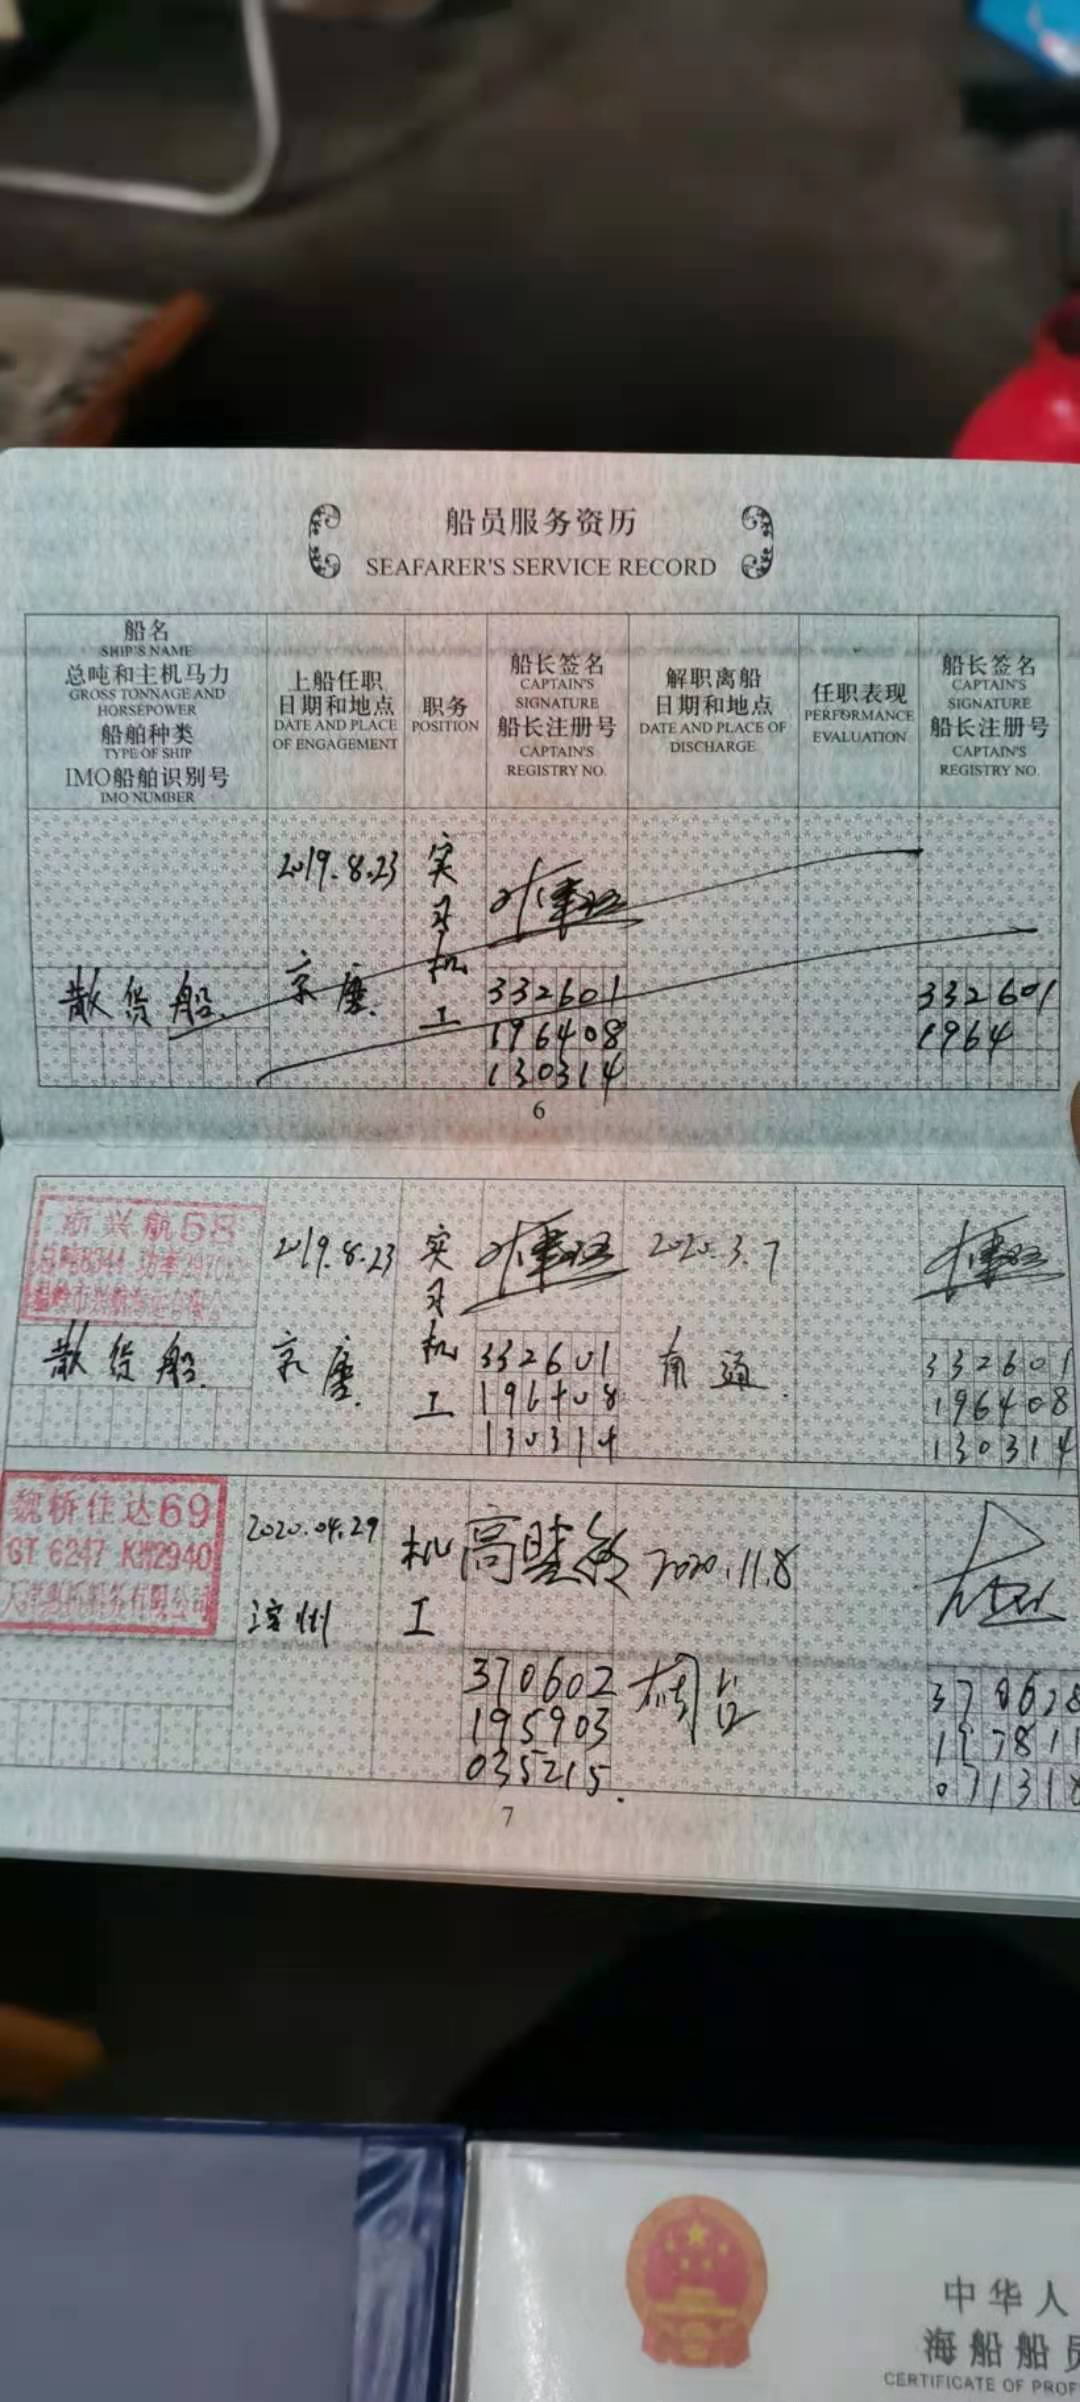 船员服务资历
SEAFARER'S SERVICE RECORD
船名
SHIP'S NAME
总吨和主机马力
GROSS TONNAGE AND
HORSEPOWER
船舶种类
TYPE OF SHIP
IMO船舶识别号
IMO NUMBER
上船任职
日期和地点
DATE AND PLACE
OF ENGAGEMENT
职务
POSITION
船长签名
CAPTAIN'S
SIGNATURE
船长注册号
CAPTAIN'S
REGISTRY NO.
解职离船
日期和地点
DATE AND PLACE OF
DISCHARGE
任职表现
PERFORMANCE
EVALUATION
船长签名
CAPTAIN'S
SIGNATURE
船长注册号
CAPTAIN'S
REGISTRY NO.
散货船
2019.8.23
京唐
实习机工
332601
196408
130314
332601
1964
6
兴航58
散货船
2019.8.23
京唐
实习机工
332601
196408
130314
2020.3.7
南通
332601
196408
130314
魏桥佳达69
GT 6247 KW2940
2020.04.29
滨州
机工
370602
195903
035215
2020.11.8
7
中华人
海船船员
CERTIFICATE OF PROF